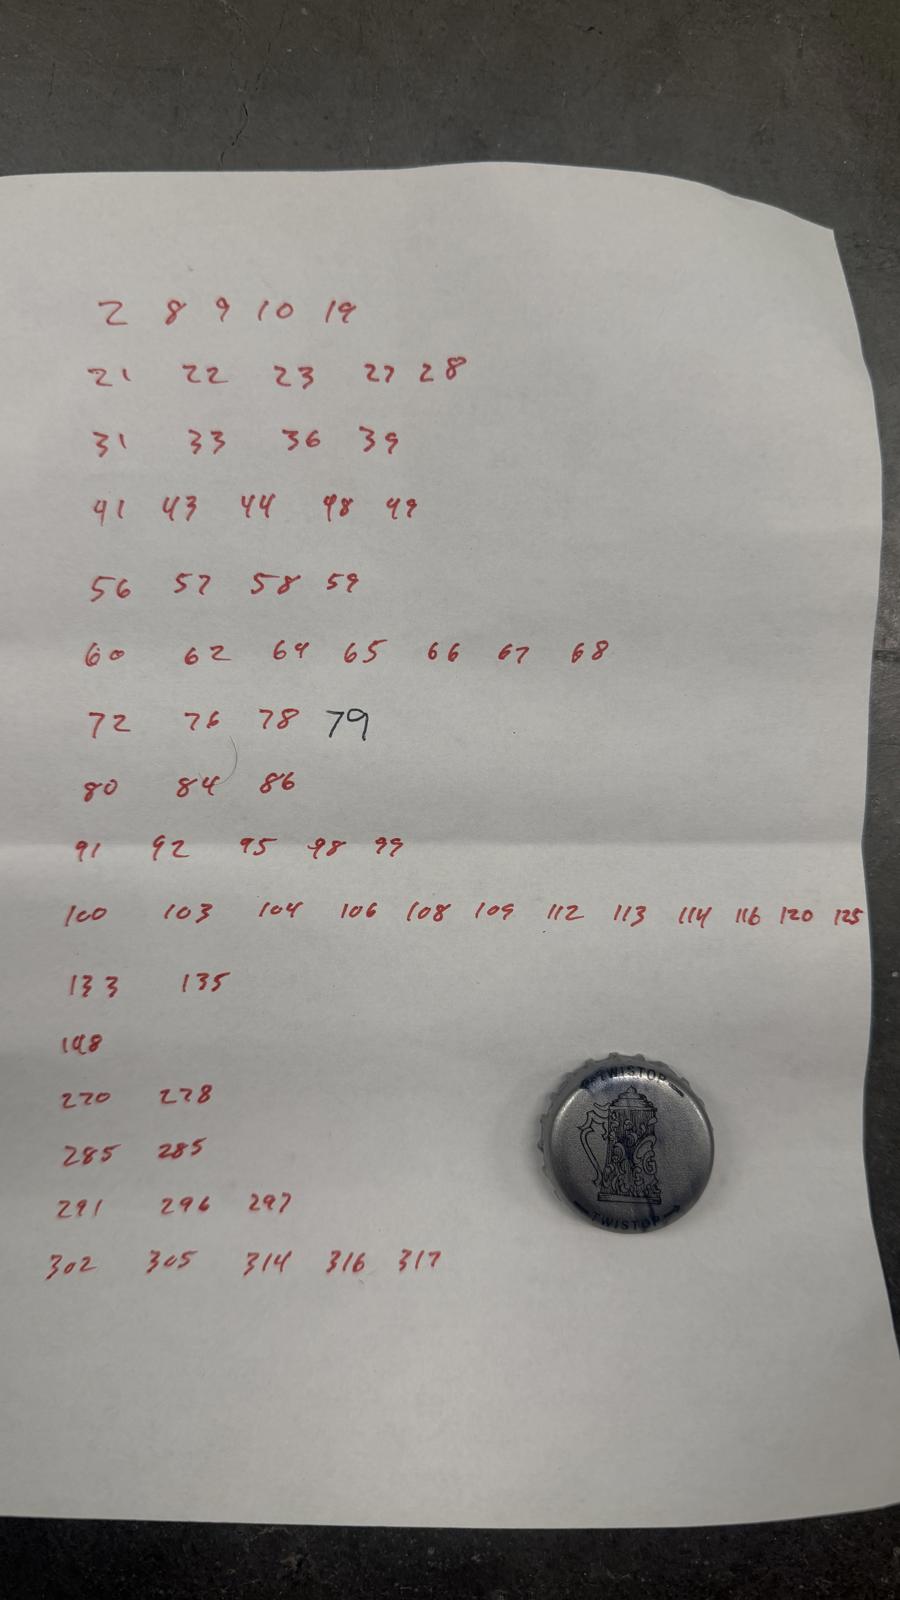 2 8 9 10 19
21 22 23 27 28
31 33 36 39
41 43 44 48 49
56 57 58 59
60 62 64 65 66 67 68
72 76 78 79
80 84 86
91 92 95 98 99
100 103 104 106 108 109 112 113 114 116 120 125
133 135
148
270 278
285 285
291 296 297
302 305 314 316 317
TWISTOP
TWISTOP